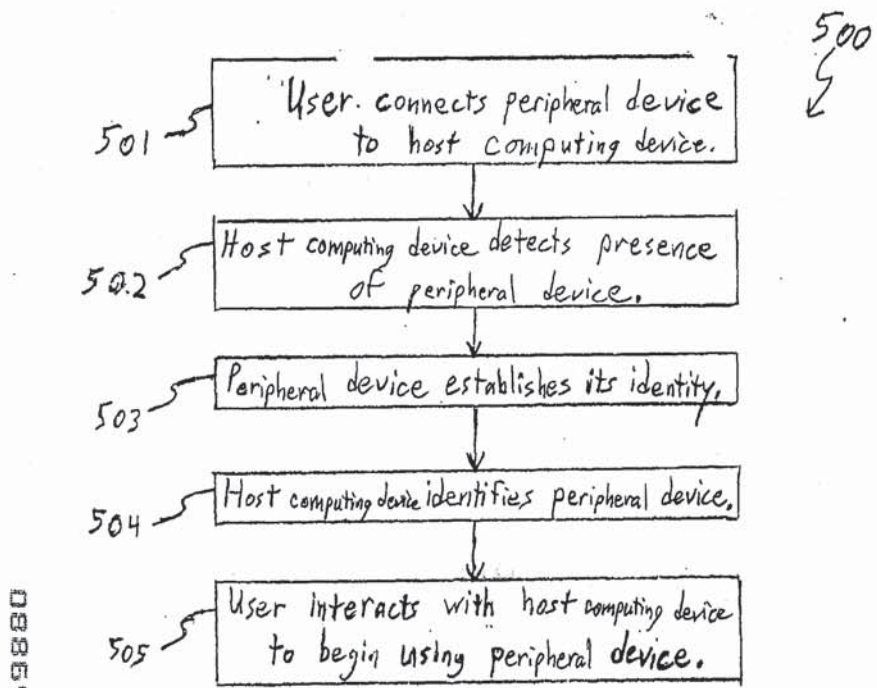 500
User connects peripheral device
to host computing device.
501
Host computing device detects presence
of peripheral device.
502
Peripheral device establishes its identity.
503
Host computing device identifies peripheral device.
504
User interacts with host computing device
to begin using peripheral device.
505